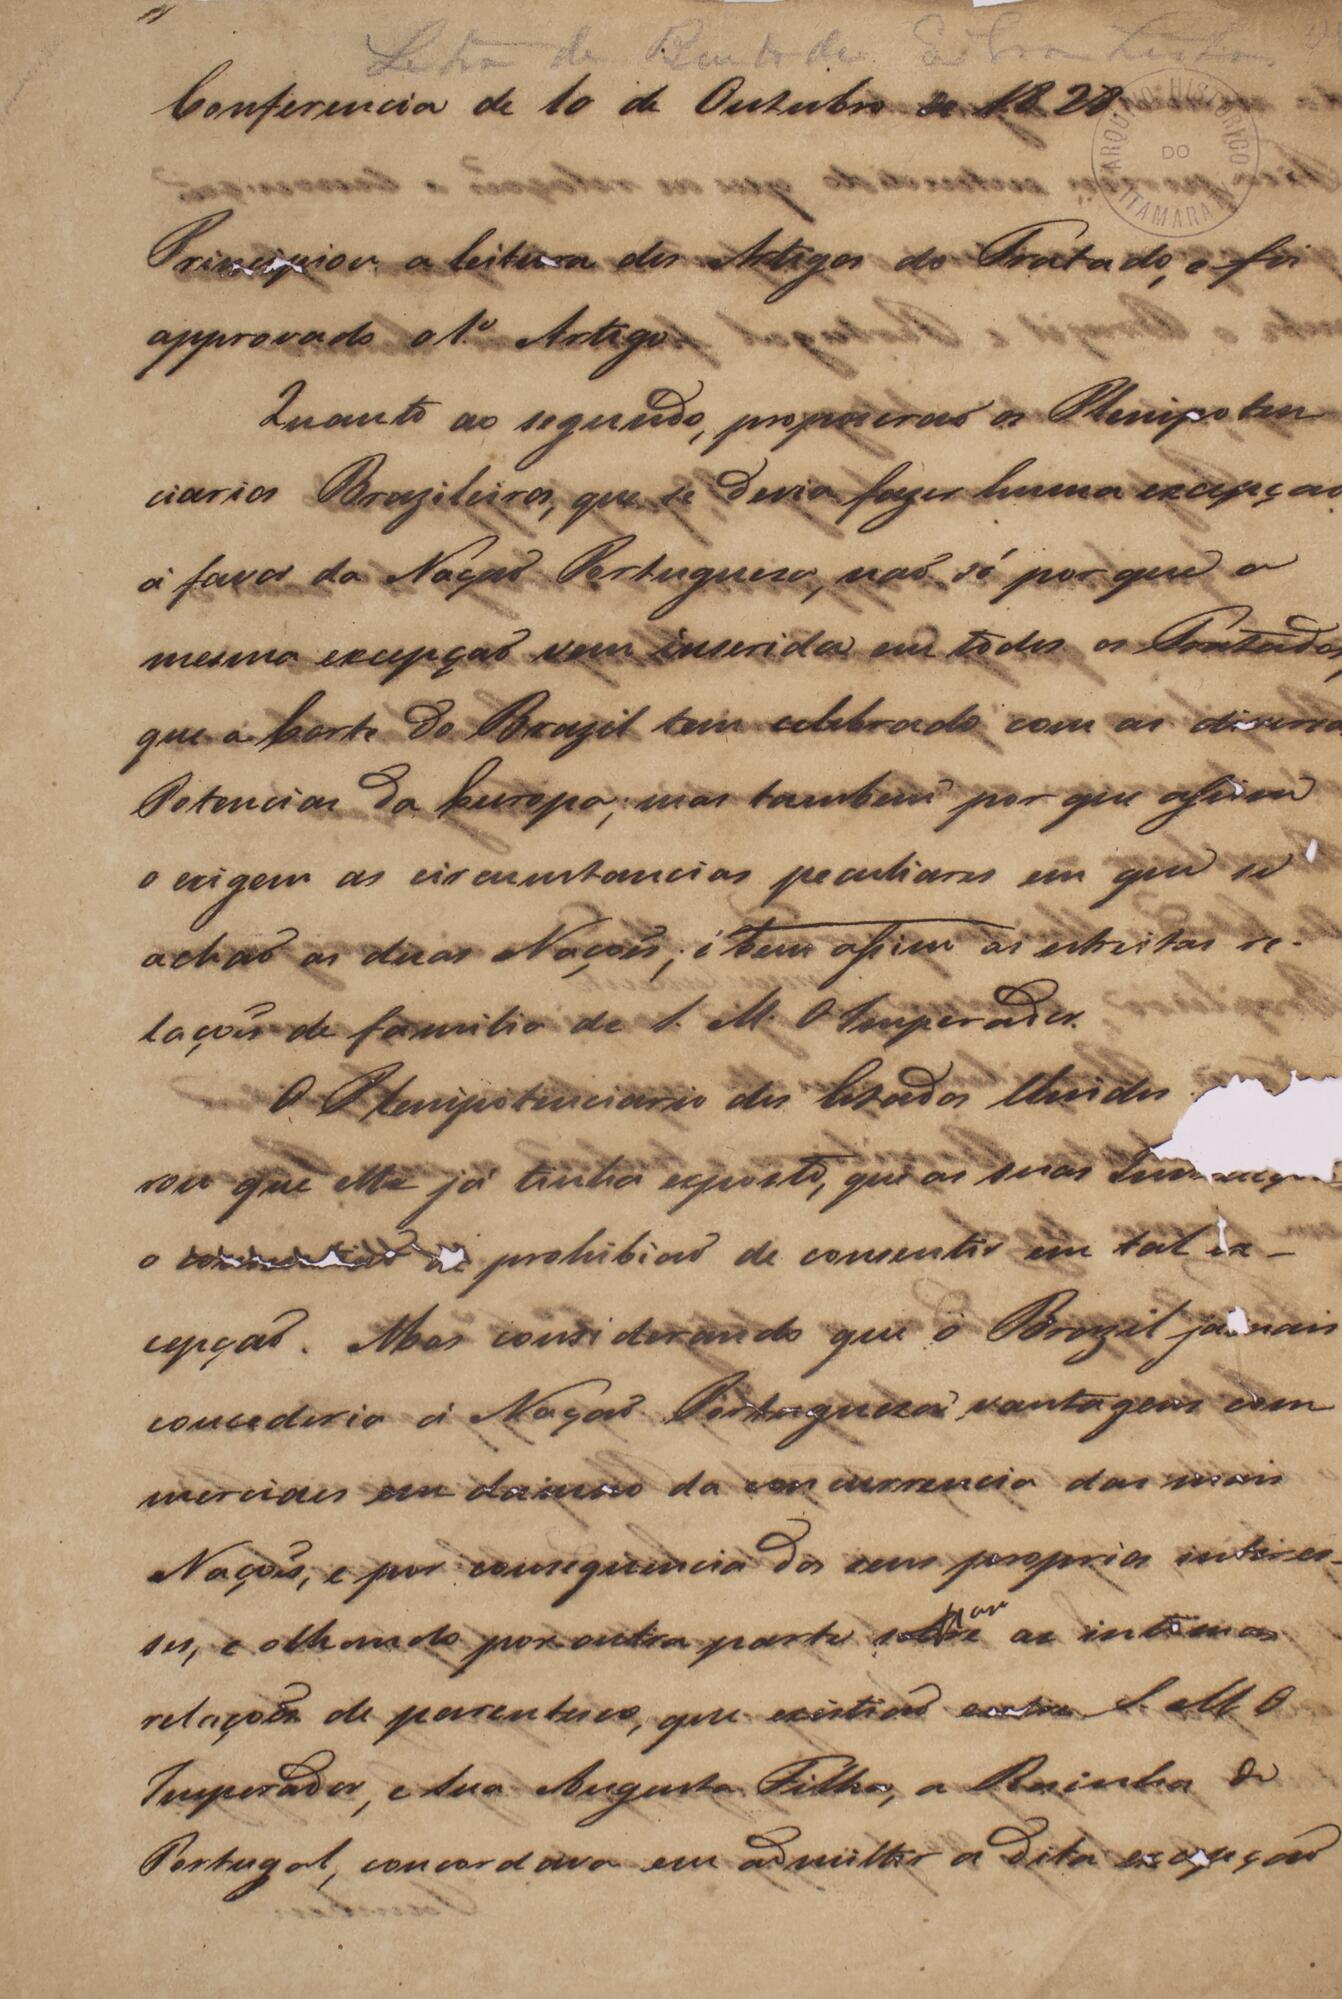 Letra de Bento da Silva Lisboa
Conferencia de 10 de Outubro de 1828
ARQUIVO HISTORICO
DO
ITAMARATY
Principiou a leitura dos Artigos do Tratado, e foi
approvado o 1.º Artigo.
Quanto ao segundo, propuzeraõ os Plenipoten
ciarios Brazileiros, que se devia fazer huma excepçaõ
á favor da Naçaõ Portugueza, naõ só por que a
mesma excepçaõ vem inserida em todos os Tratados,
que a Corte do Brazil tem celebrado com as diversas
Potencias da Europa; mas tambem por que assim
o exigem as circumstancias peculiares em que se
achaõ as duas Naçoẽs; e bem assim as estreitas re-
laçoẽs de familia de S. M. O Imperador.
O Plenipotenciario dos Estados Unidos
rou que Elle já tinha exposto, que as suas
o prohibiaõ de consentir em tal ex-
cepçaõ. Mas considerando que o Brazil jamais
concederia á Naçaõ Portugueza vantagens com
merciaes em damno da concurrencia das mais
Naçoẽs, e por consequencia dos seus proprios interes-
ses, e olhando por outra parte sobre para as intimas
relaçoẽs de parentesco, que existiaõ entre S. M. O
Imperador, e Sua Augusta Filha, a Rainha de
Portugal, concordava em admittir a dita excepçaõ